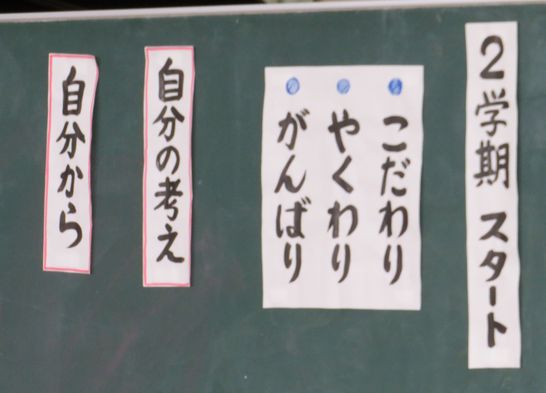 2学期 スタート
こだわり
やくわり
がんばり
自分の考え
自分から